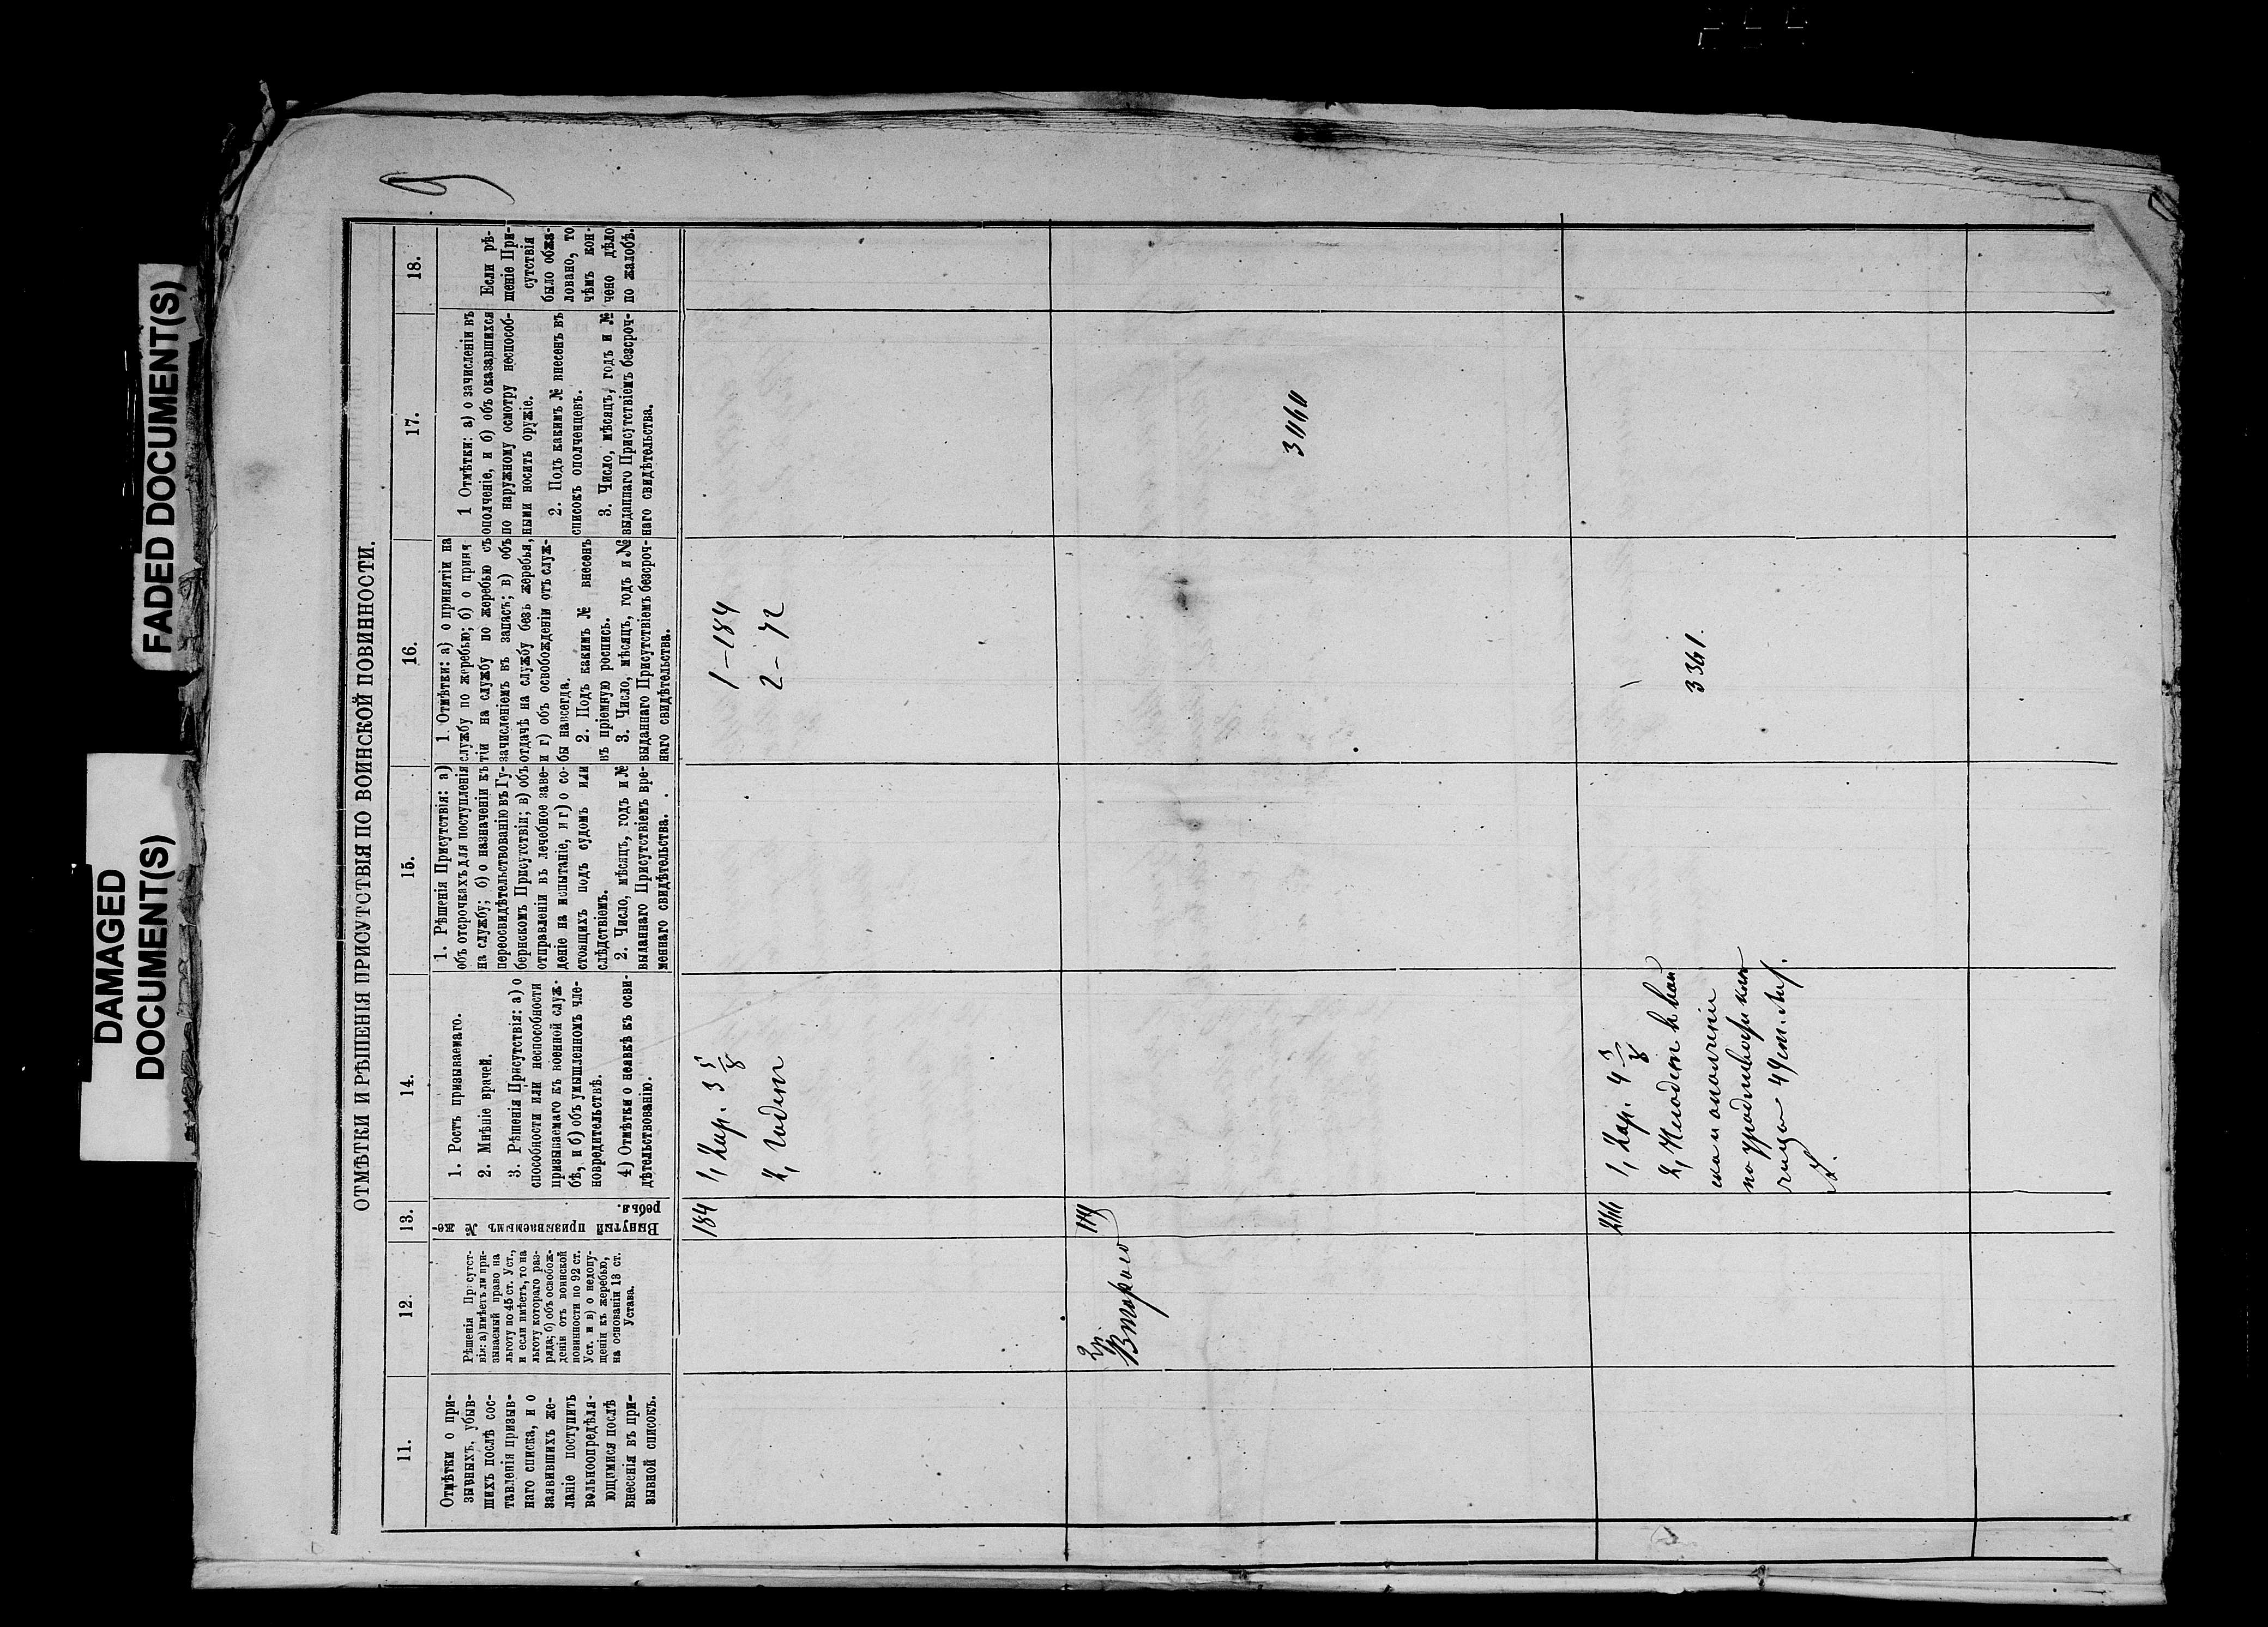 FADED DOCUMENT(S)
DAMAGED
DOCUMENT(S)
9
ОТМѢТКИ И РѢШЕНІЯ ПРИСУТСТВІЯ ПО ВОИНСКОЙ ПОВИННОСТИ.
11.
12.
13.
14.
15.
16.
17.
18.
Отмѣтки о при-
зывныхъ, убыв-
шихъ послѣ сос-
тавленія призыв-
наго списка, и о
заявившихъ же-
ланіе поступить
вольноопредѣля-
ющимися послѣ
внесенія въ при-
зывной списокъ.
Рѣшенія Присутст-
вія: а) имѣетъ ли при-
зываемый право на
льготу по 45 ст. Уст.,
и если имѣетъ, то на
льготу котораго раз-
ряда; б) объ освобож-
деніи отъ воинской
повинности по 92 ст.
Уст. и в) о недопу-
щеніи къ жеребью,
на основаніи 13 ст.
Устава.
Вынутый призываемымъ № же-
ребья.
1. Ростъ призываемаго.
2. Мнѣніе врачей.
3. Рѣшенія Присутствія: а) о
способности или неспособности
призываемаго къ военной служ-
бѣ, и б) объ умышленномъ чле-
новредительствѣ.
4) Отмѣтки о неявкѣ къ осви-
дѣтельствованію.
1. Рѣшенія Присутствія: а)
объ отсрочкахъ для поступленія
на службу; б) о назначеніи къ
переосвидѣтельствованію въ Гу-
бернскомъ Присутствіи; в) объ
отправленіи въ лечебное заве-
деніе на испытаніе, и г) о со-
стоящихъ подъ судомъ или
слѣдствіемъ.
2. Число, мѣсяцъ, годъ и №
выданнаго Присутствіемъ вре-
меннаго свидѣтельства.
1. Отмѣтки: а) о принятіи на
службу по жеребью; б) о приня-
тіи на службу по жеребью съ
зачисленіемъ въ запасъ; в) объ
отдачѣ на службу безъ жеребья,
и г) объ освобожденіи отъ служ-
бы навсегда.
2. Подъ какимъ № внесенъ
въ пріемную роспись.
3. Число, мѣсяцъ, годъ и №
выданнаго Присутствіемъ безсроч-
наго свидѣтельства.
1 Отмѣтки: а) о зачисленіи въ
ополченіе, и б) объ оказавшихся
по наружному осмотру неспособ-
ными носить оружіе.
2. Подъ какимъ № внесенъ въ
списокъ ополченцевъ.
3. Число, мѣсяцъ, годъ и №
выданнаго Присутствіемъ безсроч-
наго свидѣтельства.
Если рѣ-
шеніе При-
сутствія
было обжа-
ловано, то
чѣмъ кон-
чено дѣло
по жалобѣ.
184
1, 2 ар. 3 5/8
2, Годенъ
1-184
2-72
2 р.
Втораго
3440
1, 2 ар. 4 3/8
2, Негоденъ
3361.